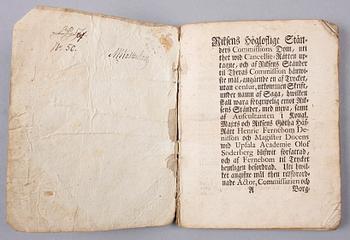 No. 50.
Riksens Högloflige Stän-
ders Commissions Dom, uti
thet wid Cancellie-Rätten up-
tagne, och af Riksens Stånder
til Theras Commission hänwi-
ste mål, angående en af Trycket,
utan censur, utkommen Skrift,
under namn af Saga, hwilken
skall wara förgripelig emot Rik-
sens Ständer, med mera, samt
af Auscultanten i Kongl.
Majets och Riksens Götha Håf-
Rätt Henric Fernebom De-
nisson och Magister Docens
wid Upsala Academie Olof
Söderberg blifwit forfattad,
och af Fernebom til Trycket
hemligen befordrad. Uti hwil-
ket angifne mål then tilförord-
nade Actor, Commissarien och
A Borg-